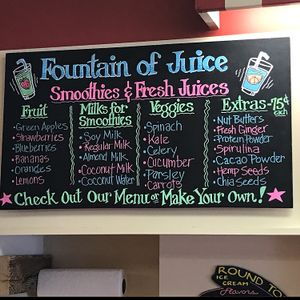 Fountain of Juice
Smoothies & Fresh Juices
Fruit
• Green Apples
• Strawberries
• Blueberries
• Bananas
• Oranges
• Lemons
Milks for
Smoothies
• Soy Milk
• Regular Milk
• Almond Milk
• Coconut Milk
• Coconut Water
Veggies
• Spinach
• Kale
• Celery
• Cucumber
• Parsley
• Carrots
Extras-75¢
each
• Nut Butters
• Fresh Ginger
• Protein Powder
• Spirulina
• Cacao Powder
• Hemp Seeds
• Chia Seeds
Check Out Our Menu or Make Your Own!
ROUND TO
ICE
CREAM
Flavors